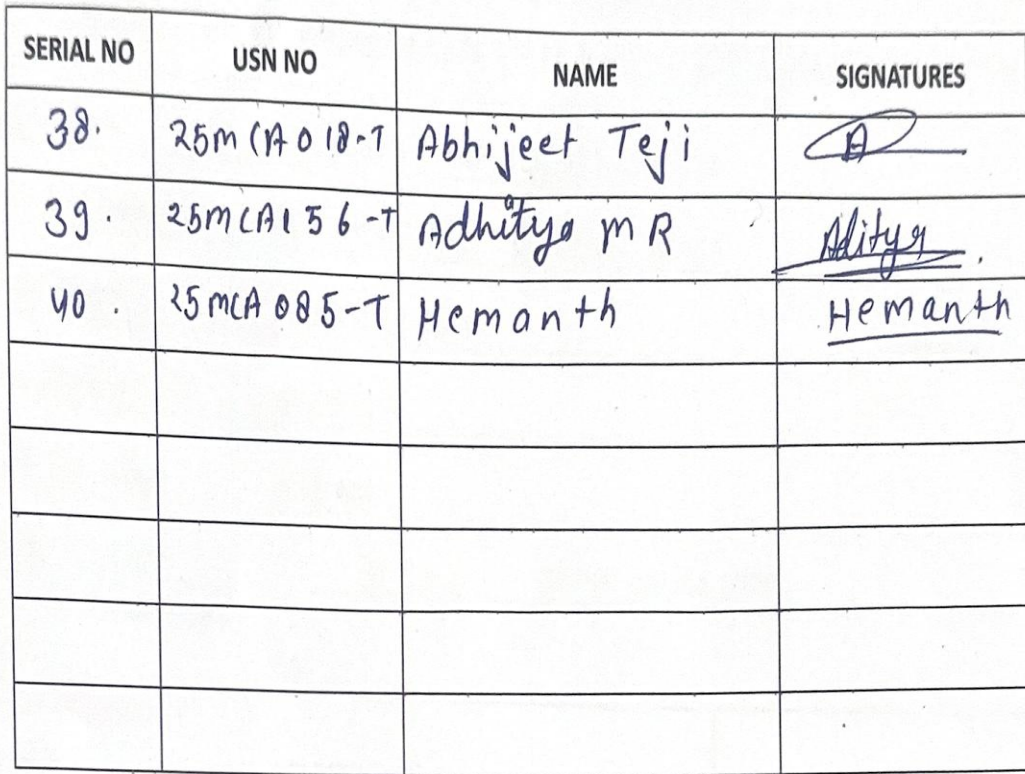 SERIAL NO USN NO NAME SIGNATURES
38. 25MCA018-T Abhijeet Teji A
39. 25MCA156-T Adhitya M R Aditya
40. 25MCA085-T Hemanth Hemanth